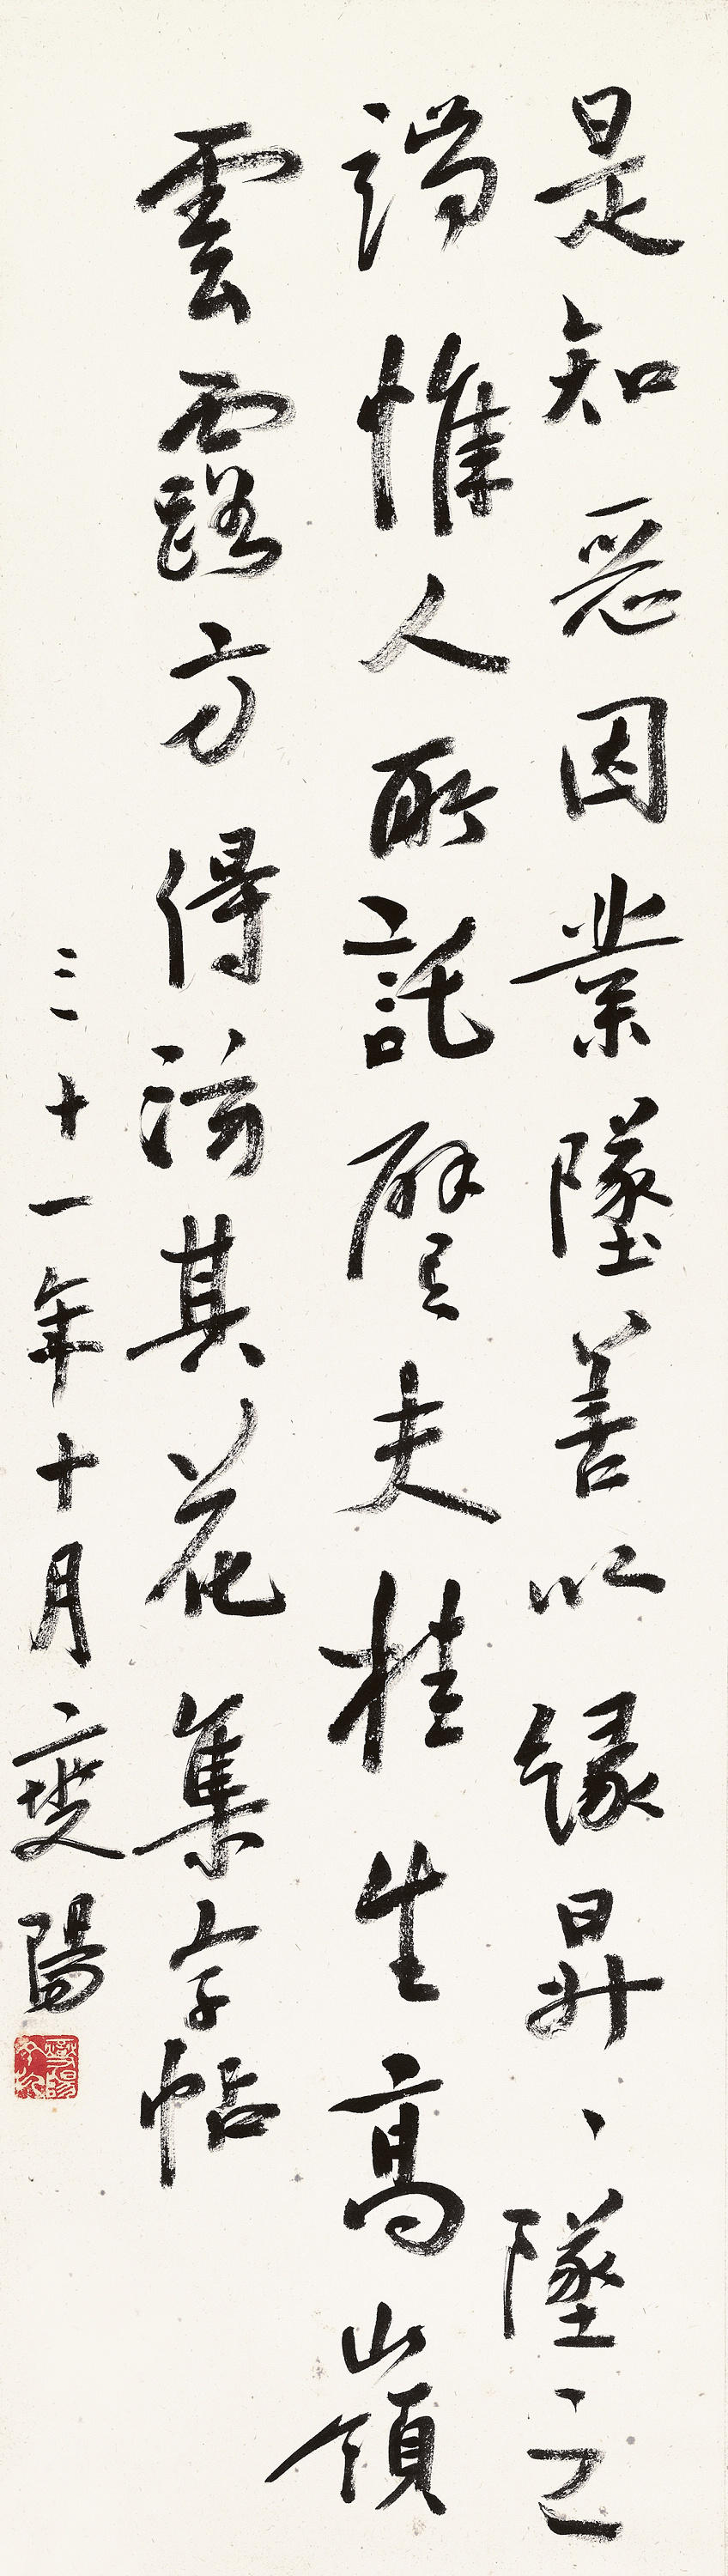 是知惡因業墜善以緣昇、墜之
端惟人所託譬夫桂生高山嶺
雲露方得泫其花集字帖
三十一年十月燮陽